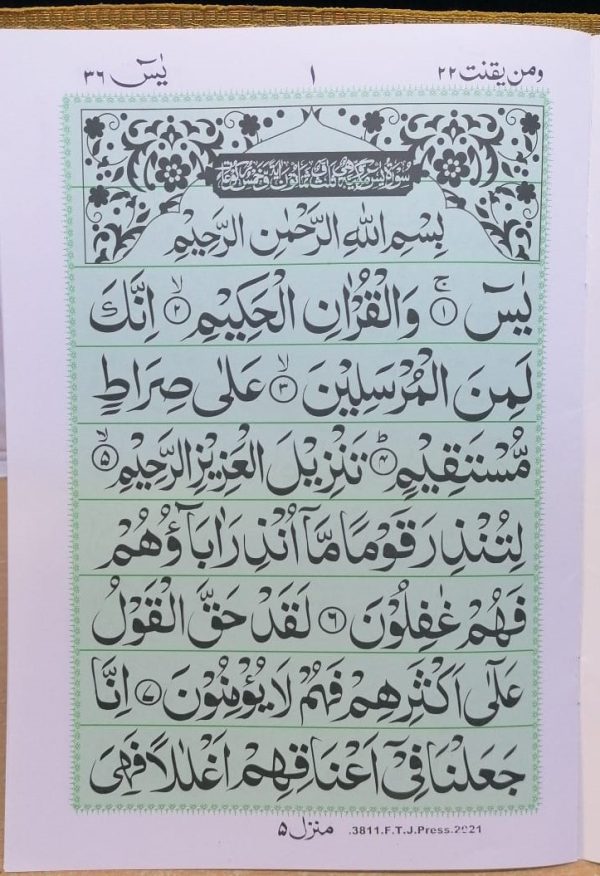 ومن یقنت ۲۲
۱
یٰسٓ ۳۶
بِسْمِ اللهِ الرَّحْمٰنِ الرَّحِیْمِ
یٰسٓ ۚ﴿۱﴾ وَالْقُرْاٰنِ الْحَكِیْمِ ۙ﴿۲﴾ اِنَّكَ
لَمِنَ الْمُرْسَلِیْنَ ۙ﴿۳﴾ عَلٰی صِرَاطٍ
مُّسْتَقِیْمٍ ؕ﴿۴﴾ تَنْزِیْلَ الْعَزِیْزِ الرَّحِیْمِ ۙ﴿۵﴾
لِتُنْذِرَ قَوْمًا مَّاۤ اُنْذِرَ اٰبَآؤُهُمْ
فَهُمْ غٰفِلُوْنَ ﴿۶﴾ لَقَدْ حَقَّ الْقَوْلُ
عَلٰۤی اَكْثَرِهِمْ فَهُمْ لَا یُؤْمِنُوْنَ ﴿۷﴾ اِنَّا
جَعَلْنَا فِیْۤ اَعْنَاقِهِمْ اَغْلٰلًا فَهِیَ
منزل ۵
.3811.F.T.J.Press.2021